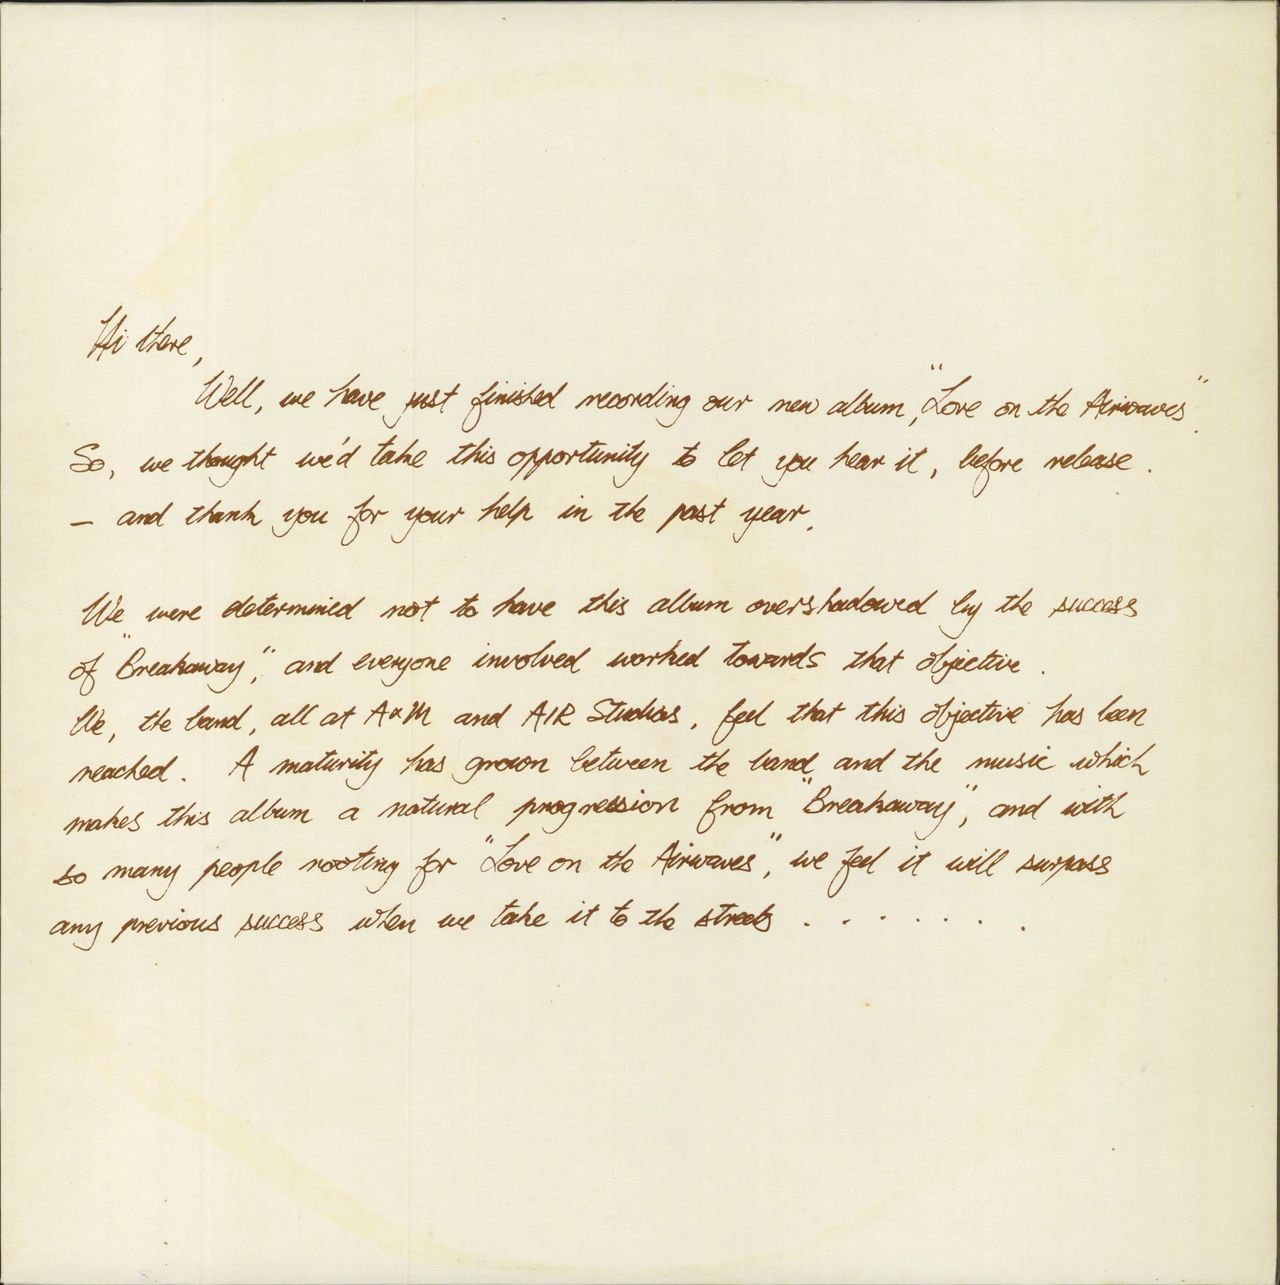 Hi there,
Well, we have just finished recording our new album, "Love on the Airwaves".
So, we thought we'd take this opportunity to let you hear it, before release.
- and thank you for your help in the past year.
We were determined not to have this album overshadowed by the success
of "Breakaway", and everyone involved worked towards that objective.
We, the band, all at A&M and AIR Studios, feel that this objective has been
reached. A maturity has grown between the band and the music which
makes this album a natural progression from "Breakaway", and with
so many people rooting for "Love on the Airwaves", we feel it will surpass
any previous success when we take it to the streets . . . . . . .